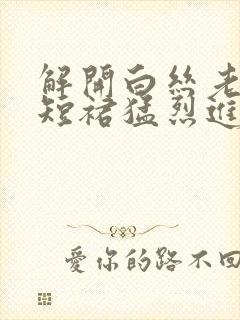 解開白絲老
短裙猛烈進
愛你的路不回